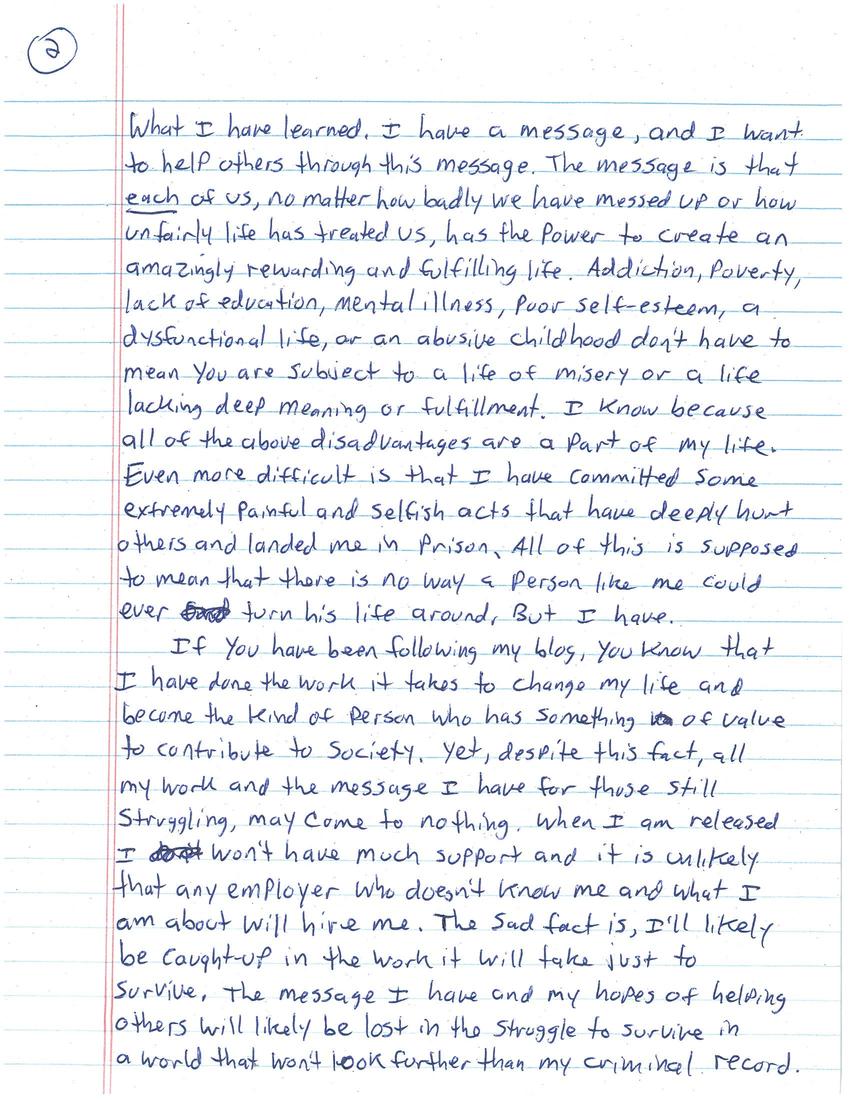 2
What I have learned. I have a message, and I want
to help others through this message. The message is that
each of us, no matter how badly we have messed up or how
unfairly life has treated us, has the Power to create an
amazingly rewarding and fulfilling life. Addiction, Poverty,
lack of education, mental illness, Poor self-esteem, a
dysfunctional life, or an abusive childhood don't have to
mean You are subject to a life of misery or a life
lacking deep meaning or fulfillment. I Know because
all of the above disadvantages are a Part of my life.
Even more difficult is that I have committed some
extremely Painful and selfish acts that have deeply hurt
others and landed me in Prison. All of this is supposed
to mean that there is no way a Person like me could
ever turn his life around, But I have.
If You have been following my blog, You know that
I have done the work it takes to change my life and
become the kind of Person who has something of value
to contribute to Society. Yet, despite this fact, all
my work and the message I have for those still
Struggling, may come to nothing. When I am released
I won't have much support and it is unlikely
that any employer who doesn't know me and what I
am about will hire me. The sad fact is, I'll likely
be caught-up in the work it will take just to
survive. The message I have and my hopes of helping
others will likely be lost in the struggle to survive in
a world that won't look further than my criminal record.